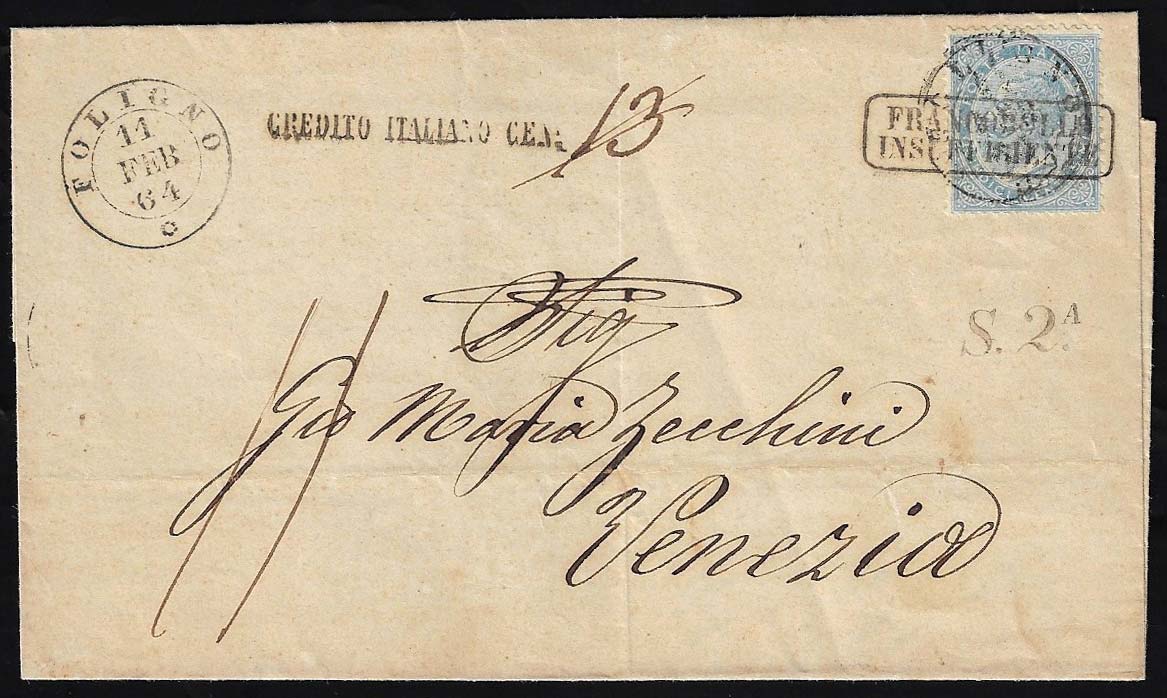 FOLIGNO
11
FEB
64
CREDITO ITALIANO CEN. 13
FRANCOBOLLO
INSUFFICIENTE
S. 2.A
Sig
Gio Maria Zecchini
Venezia